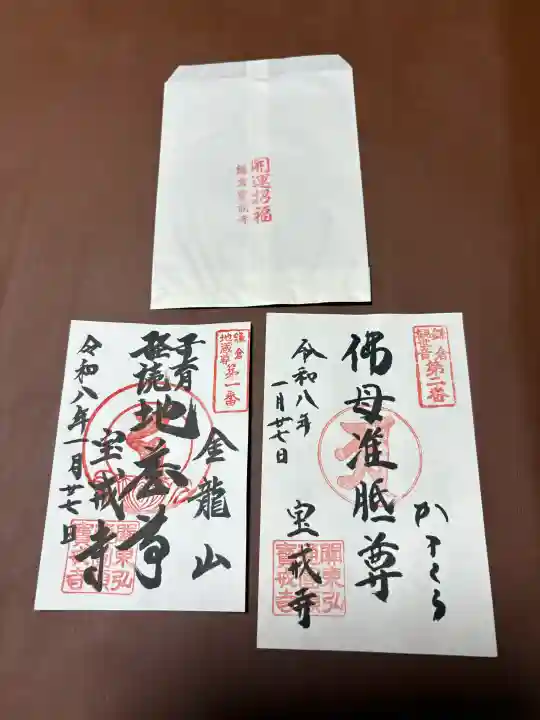 開運招福
鎌倉宝戒寺
鎌倉
地蔵尊
第一番
金龍山
子育
経読地蔵尊
宝戒寺
令和八年一月廿七日
鎌倉
観世音
第二番
かまくら
佛母准胝尊
宝戒寺
令和八年
一月廿七日
關東弘
寶戒寺
關東弘
寶戒寺